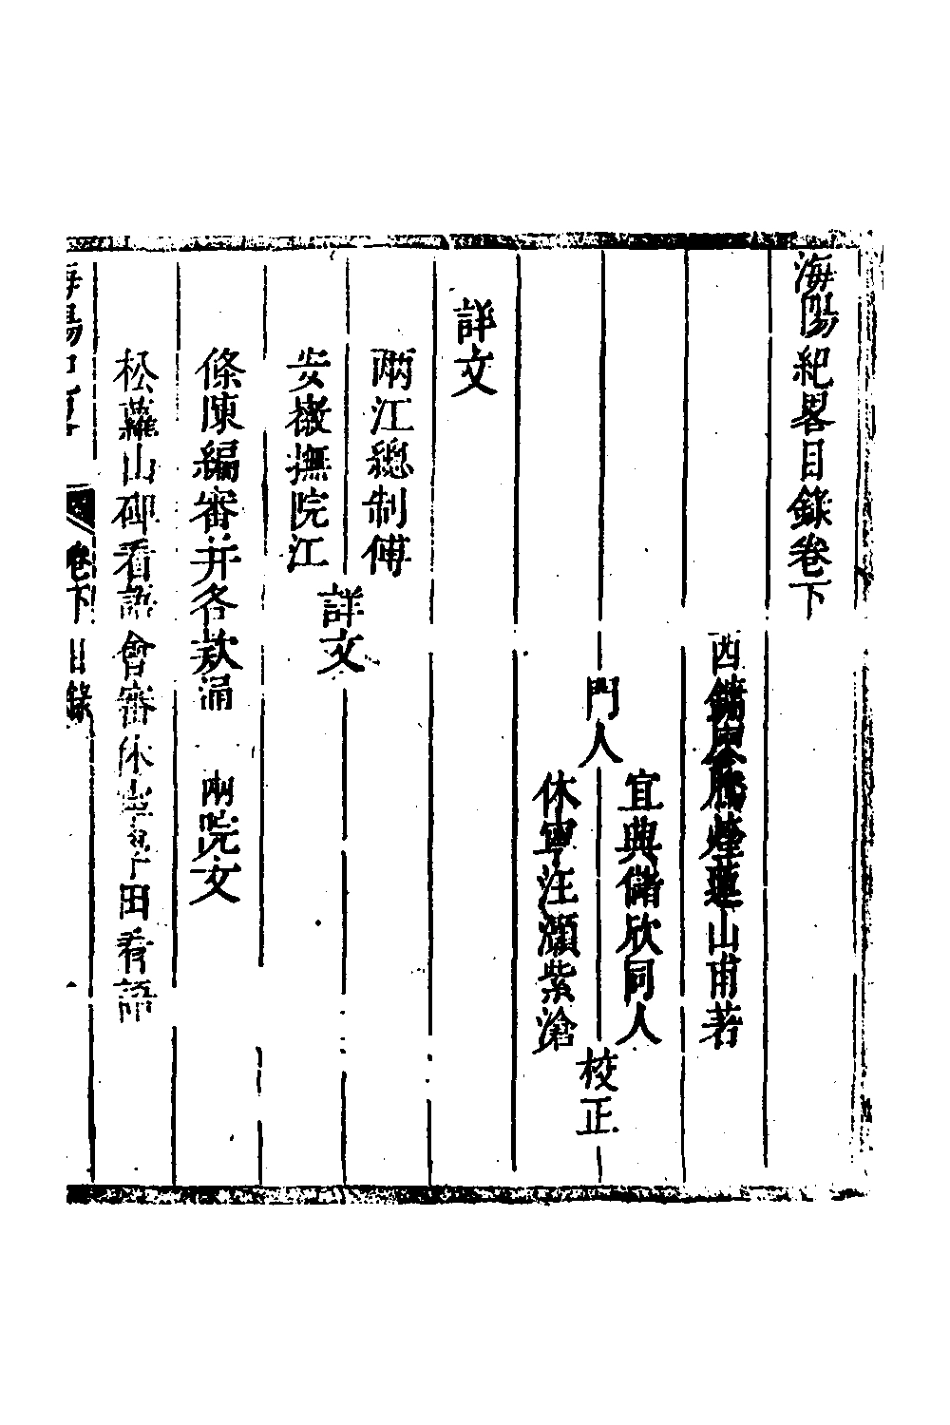 海陽紀畧目錄卷下
西鏞廖騰煃蓮山甫著
門人
宜興儲欣同人
休寧汪灝紫滄
校正
詳文
兩江總制傅
安徽撫院江
詳文
條陳編審并各欵涌 兩院文
松蘿山碑看語 會審休寧 田看語
海陽紀畧 卷下 目錄